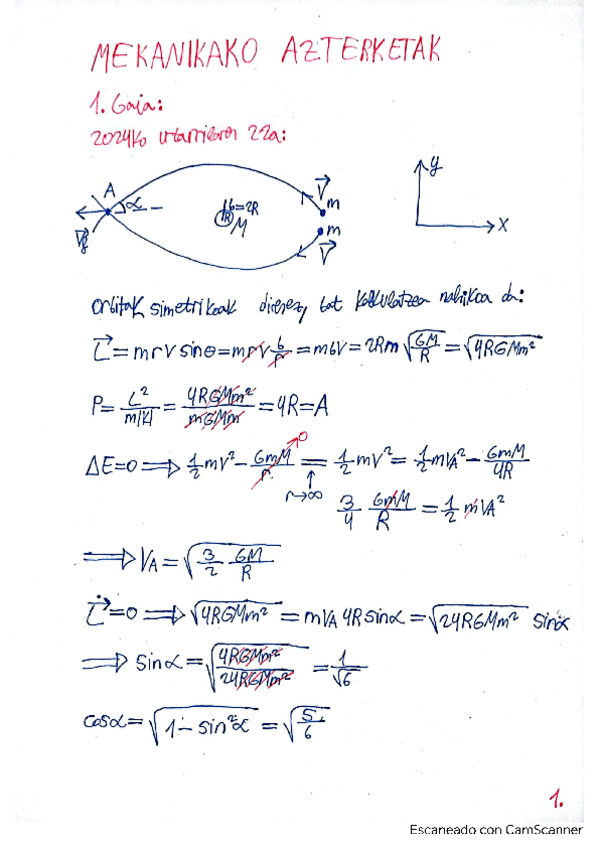 MEKANIKAKO AZTERKETAK
1. Gaia:
2024ko urtarrilaren 22a:
A α V⃗ m b=2R R M m V⃗ V⃗f y x
orbitak simetrikoak direnez, bat kalkulatzea nahikoa da:
L⃗ = mrv sinθ = mrv b/r = mbv = 2Rm √(GM/R) = √(4RGMm²)
P = L²/m|K| = 4RGMm²/mGMm = 4R = A
ΔE=0 ⟹ 1/2 mv² - GmM/r →0 = 1/2 mv² = 1/2 mVA² - GmM/4R
r→∞ 3/4 GmM/R = 1/2 mVA²
⟹ VA = √(3/2 GM/R)
L⃗̇=0 ⟹ √(4RGMm²) = mVA 4R sinα = √(24RGMm²) sinα
⟹ sinα = √(4RGMm²/24RGMm²) = 1/√6
cosα = √(1 - sin²α) = √(5/6)
1.
Escaneado con CamScanner